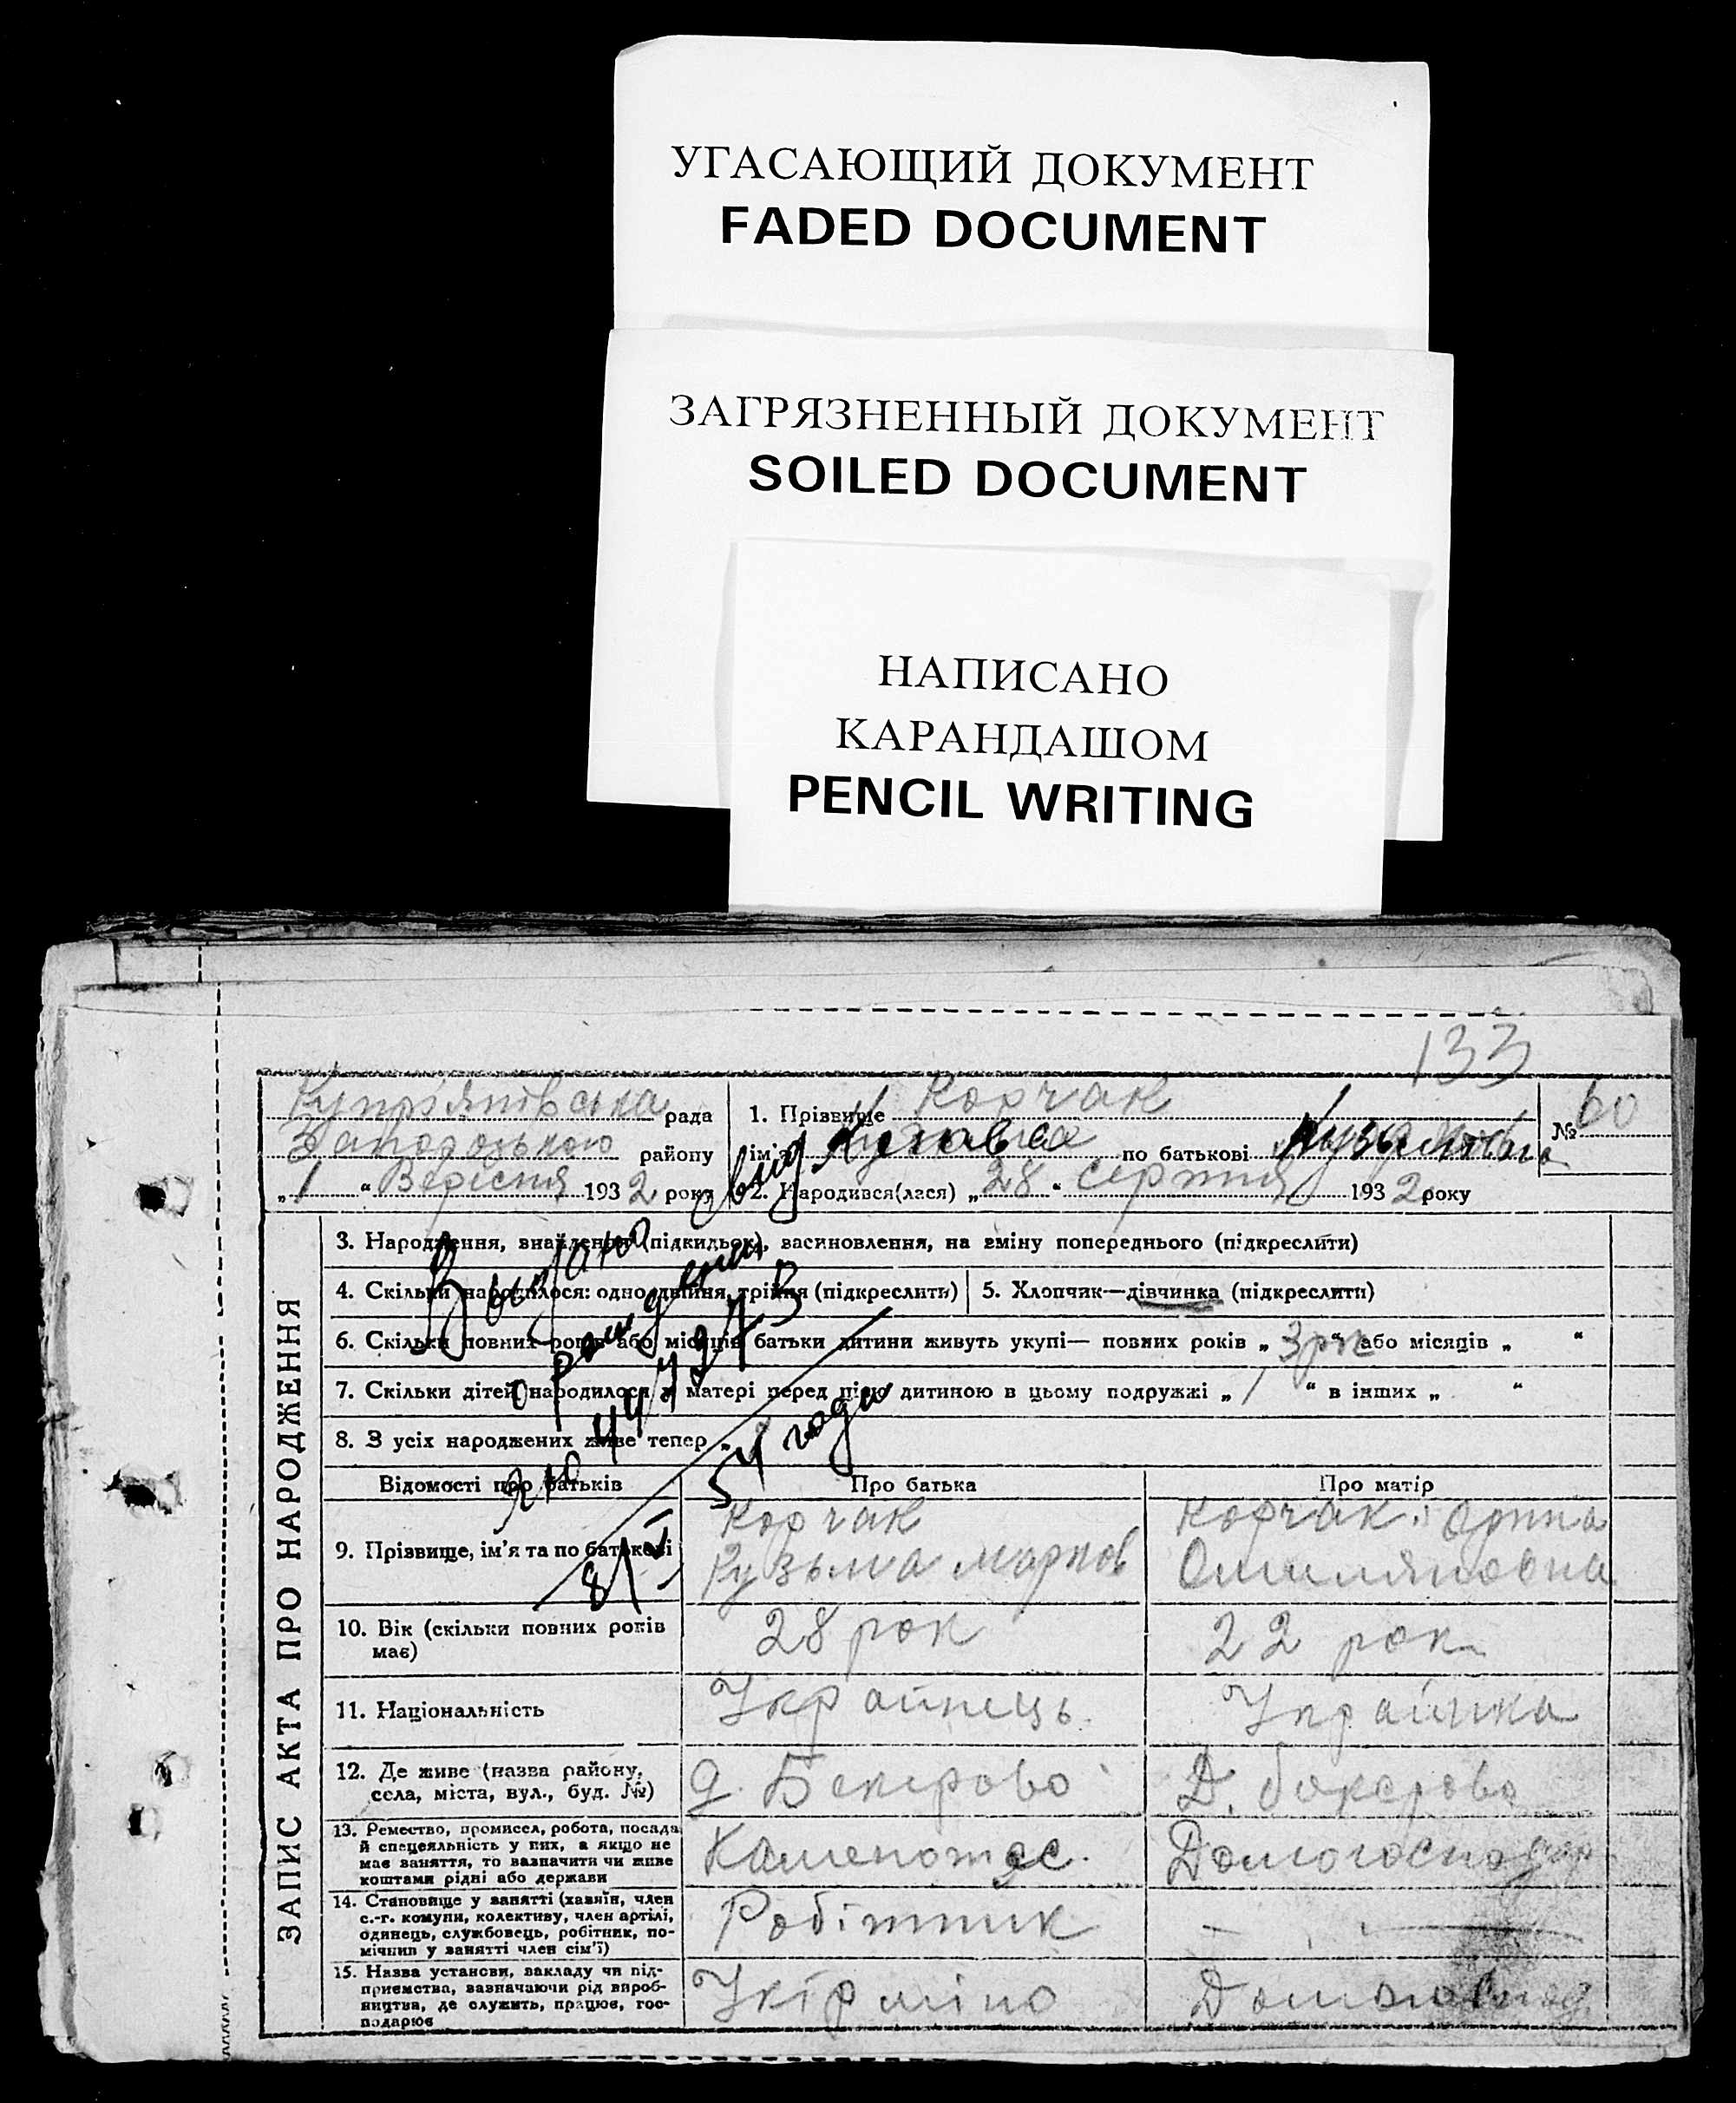 УГАСАЮЩИЙ ДОКУМЕНТ
FADED DOCUMENT
ЗАГРЯЗНЕННЫЙ ДОКУМЕНТ
SOILED DOCUMENT
НАПИСАНО
КАРАНДАШОМ
PENCIL WRITING
133
Купріянівська рада
1. Прізвище Корчак
№ 60
району
ім'я
по батькові
„1“ Вересня 1932 року
2. Народився(лася) „28“ серпня 1932 року
ЗАПИС АКТА ПРО НАРОДЖЕННЯ
3. Народження, знайдення (підкидьок), засиновлення, на зміну попереднього (підкреслити)
4. Скільки народилося: одно, двійня, трійня (підкреслити)
5. Хлопчик—дівчинка (підкреслити)
6. Скільки повних років або місяців батьки дитини живуть укупі— повних років „3 рок“ або місяців „ “
7. Скільки дітей народилося у матері перед цією дитиною в цьому подружжі „1“ в інших „ “
8. З усіх народжених живе тепер „
Выдано
о рождении
54 года
8/V
Відомості про батьків
Про батька
Про матір
9. Прізвище, ім'я та по батькові
Корчак
Кузьма марков
Корчак Орина
10. Вік (скільки повних років
має)
28 рок
22 рок
11. Національність
Українець
Українка
12. Де живе (назва району,
села, міста, вул., буд. №)
д. Бекерово
Д. бекерово
13. Ремество, промисел, робота, посада
й спецеяльність у них, а якщо не
має заняття, то зазначити чи живе
коштами рідні або держави
Каменотес.
Домогосподар
14. Становище у занятті (хазяїн, член
с.-г. комуни, колективу, член артілі,
одинець, службовець, робітник, по-
мічник у занятті член сім'ї)
Робітник
15. Назва установи, закладу чи під-
приємства, зазначаючи рід вироб-
ництва, де служить, працює, гос-
подарює